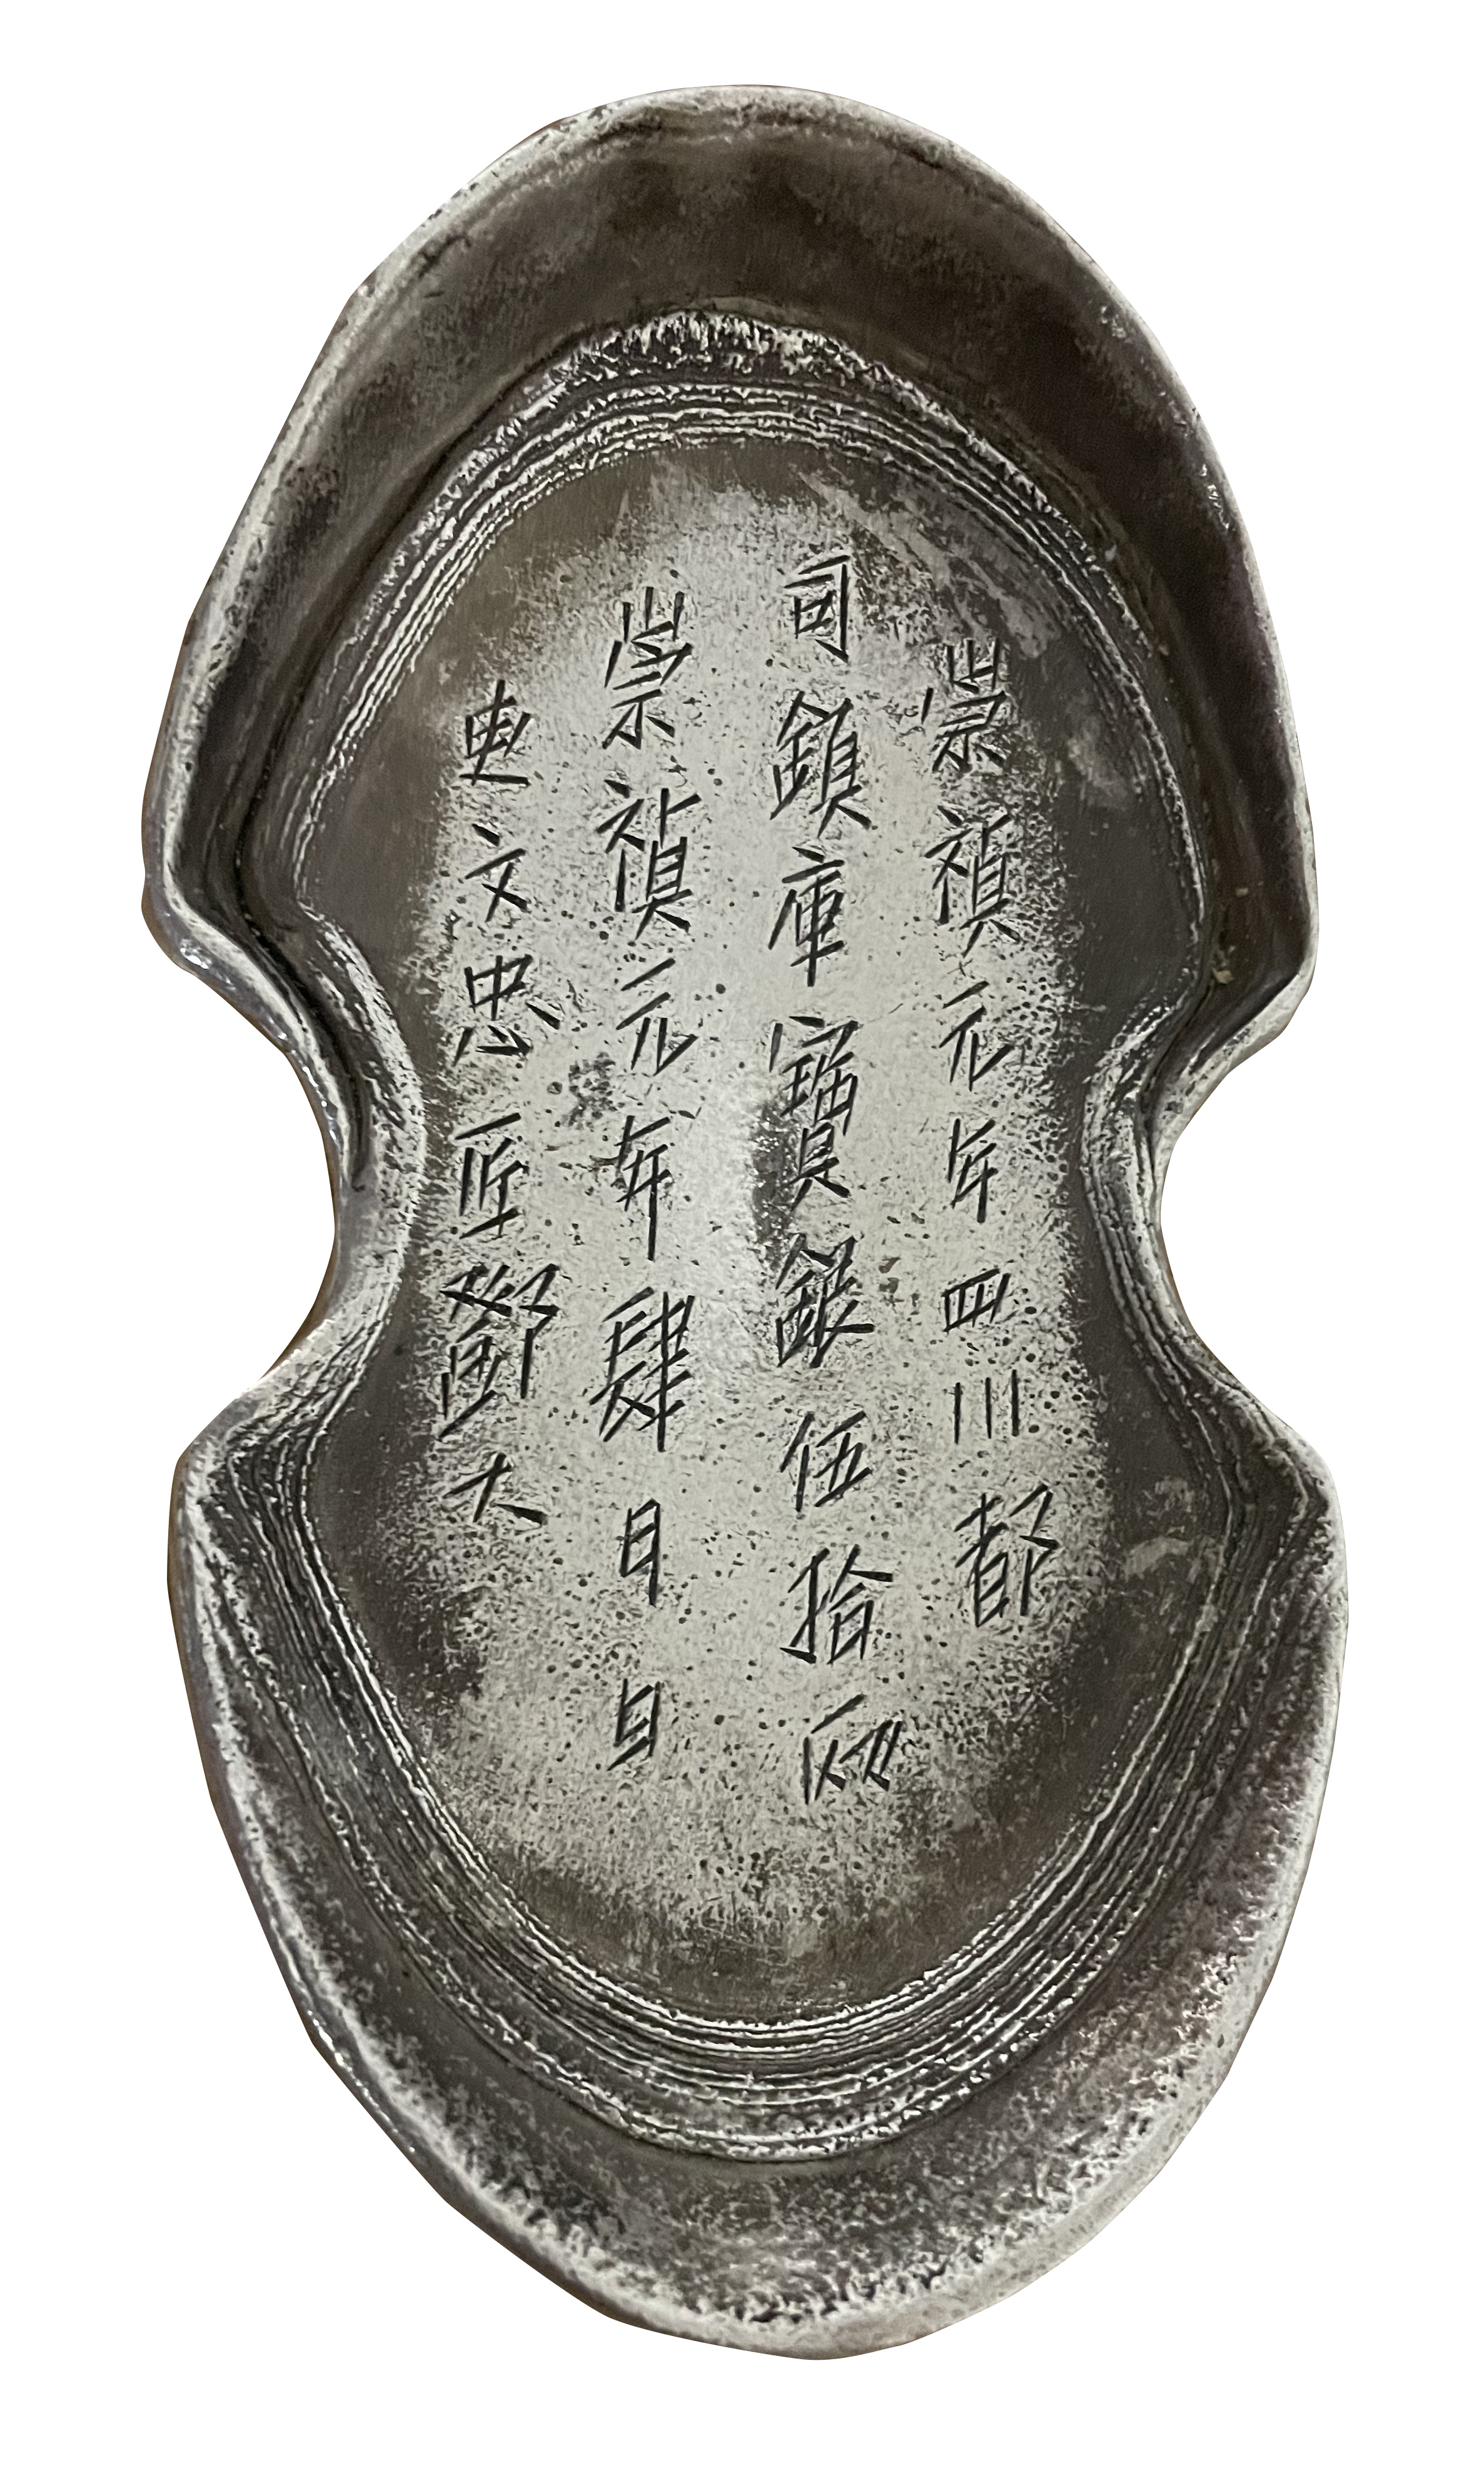 崇禎元年四川都
司鎮庫寶銀伍拾両
崇禎元年肆月日
吏文忠匠鄧大